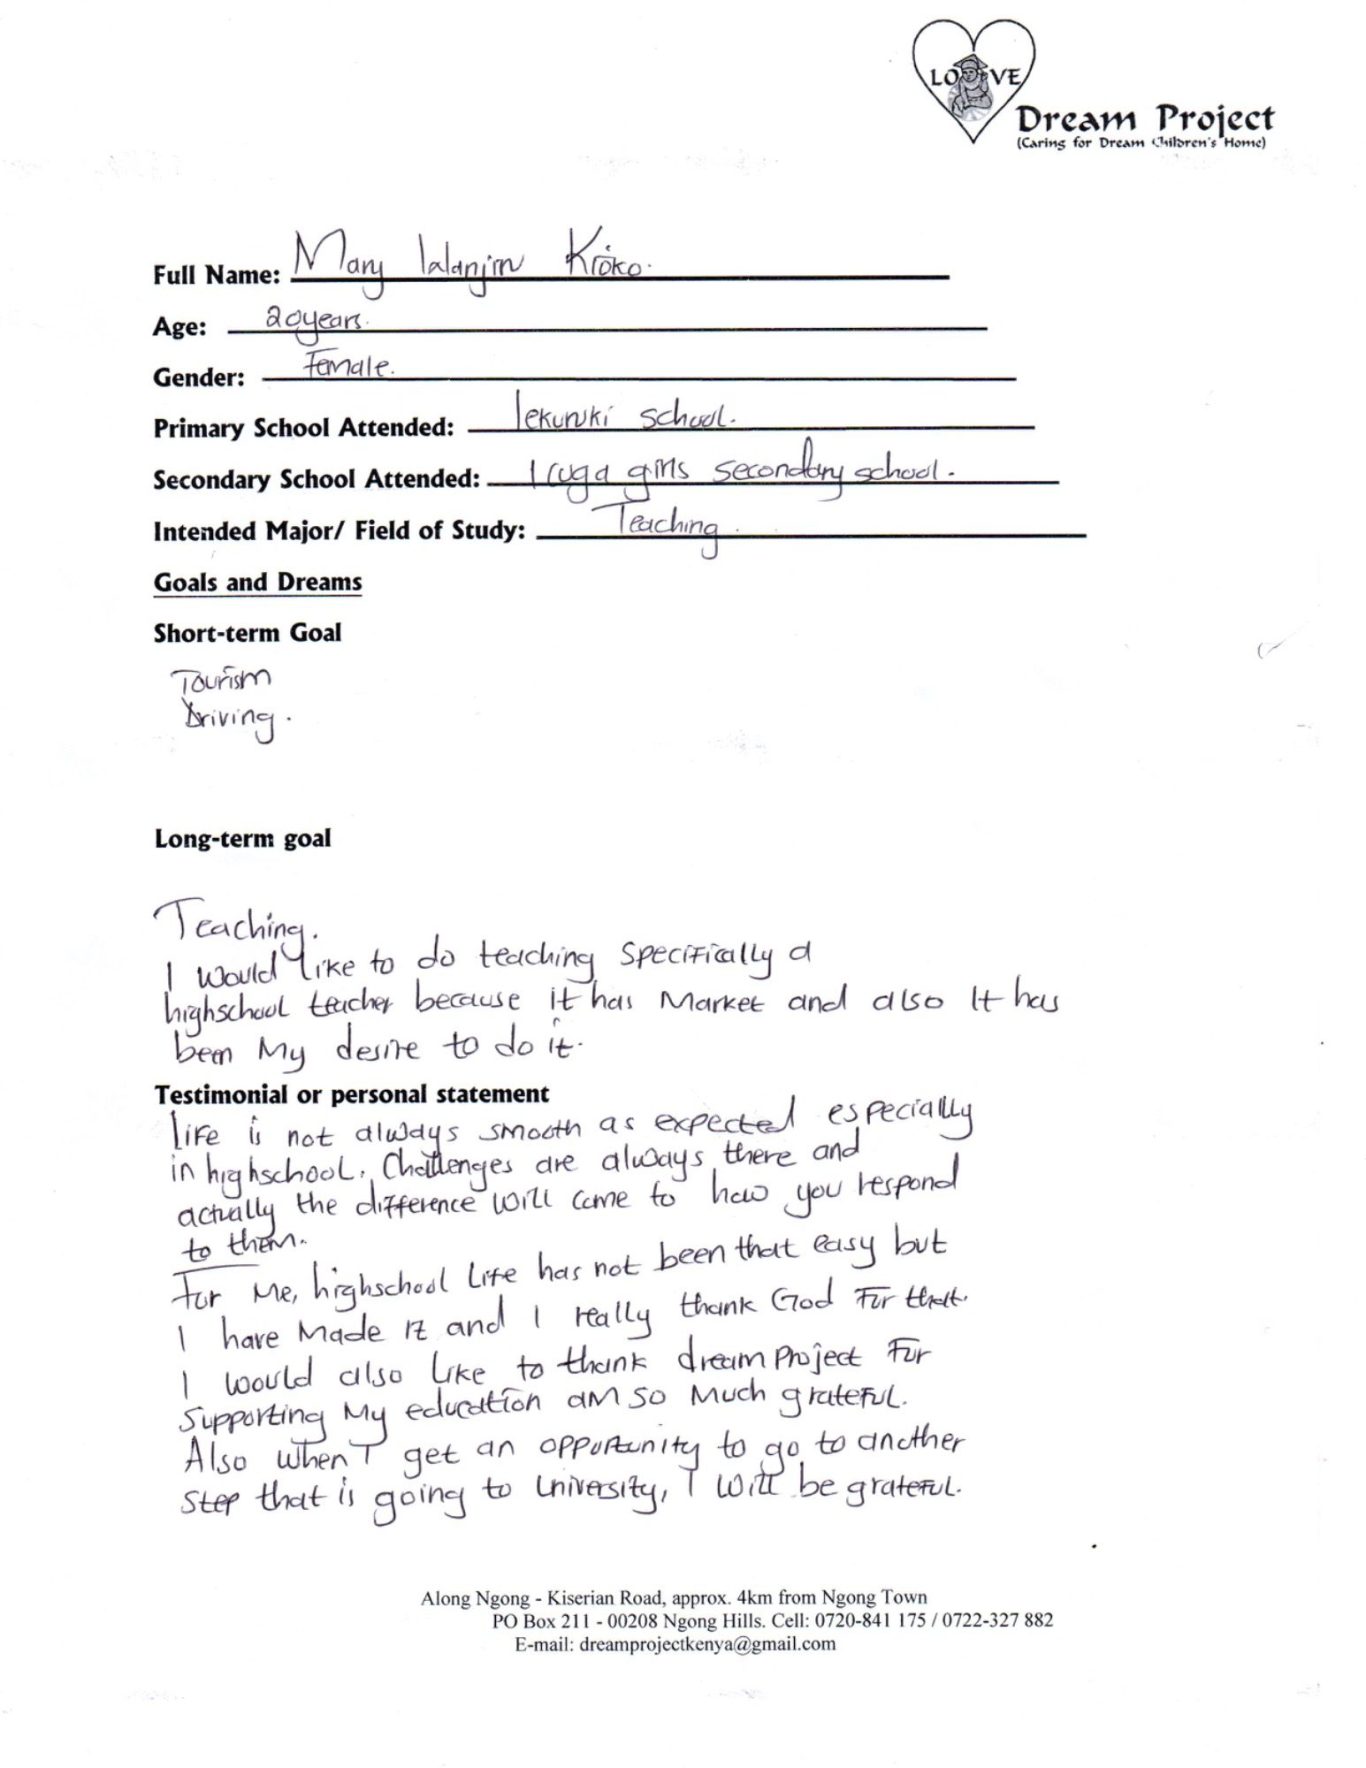 LOVE
Dream Project
(Caring for Dream Children's Home)
Full Name: Mary lalanjin Kioko.
Age: 20years.
Gender: Female.
Primary School Attended: lekuruki school.
Secondary School Attended: girls secondary school.
Intended Major/ Field of Study: Teaching.
Goals and Dreams
Short-term Goal
Tourism
Driving.
Long-term goal
Teaching.
I would like to do teaching specifically a
highschool teacher because it has Market and also It has
been My desire to do it.
Testimonial or personal statement
Life is not always smooth as expected especially
in highschool. Challenges are always there and
actually the difference will come to how you respond
to them.
For Me, highschool Life has not been that easy but
I have Made it and I really thank God For that.
I would also like to thank dream Project For
Supporting My education am so Much grateful.
Also when I get an opportunity to go to another
step that is going to University, I will be grateful.
Along Ngong - Kiserian Road, approx. 4km from Ngong Town
PO Box 211 - 00208 Ngong Hills. Cell: 0720-841 175 / 0722-327 882
E-mail: dreamprojectkenya@gmail.com